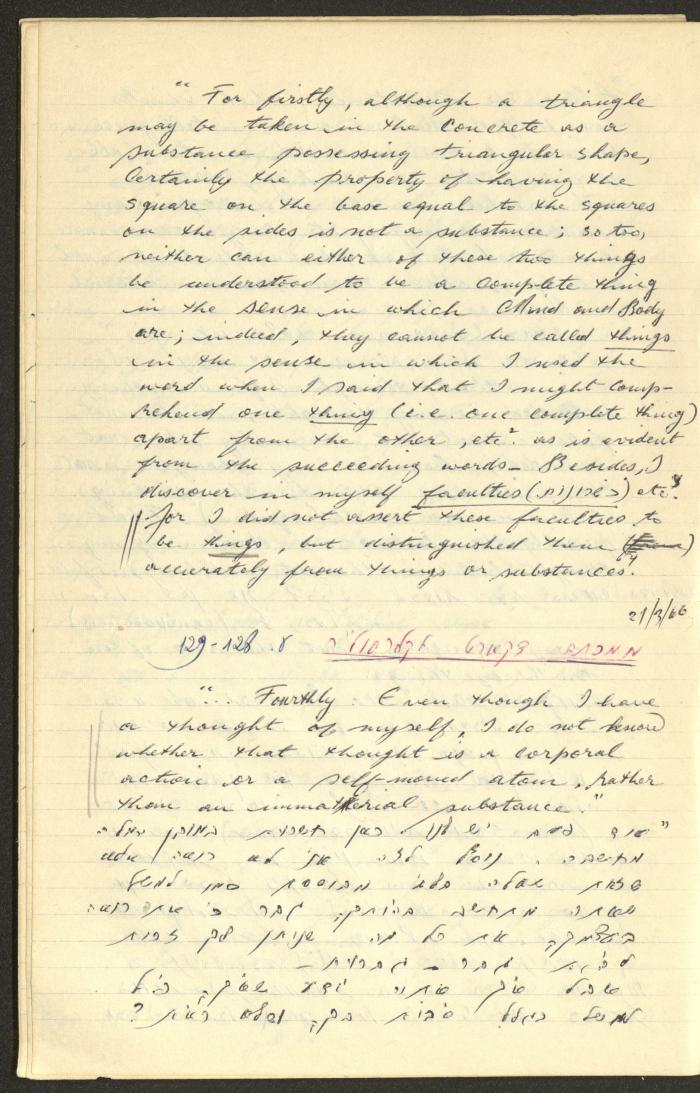 "For firstly, although a triangle
may be taken in the concrete as a
substance possessing triangular shape,
certainly the property of having the
square on the base equal to the squares
on the sides is not a substance; so too,
neither can either of these two things
be understood to be a complete thing
in the sense in which Mind and Body
are; indeed, they cannot be called things
in the sense in which I used the
word when I said that I might comp-
rehend one thing (i.e. one complete thing)
apart from the other, etc. as is evident
from the succeeding words – Besides, I
discover in myself faculties (כשרונות) etc."
for I did not assert these faculties to
be things, but distinguished them
accurately from things or substances."
21/3/66
ממכתב דקארט לקלרסוליה ע. 128-129
"... Fourthly. Even though I have
a thought of myself, I do not know
whether that thought is a corporal
action or a self-moved atom, rather
than an immaterial substance."
"עוד פעם יש לנו כאן
מחשבה. אני לא רואה אלא
שזאת שאלה בלתי מבוססת כמו למשל
רואה
את כל מה שנותן לך זכות
להיות גבר - גברית -
אבל איך אתה יודע שאינך
למשל בגלל